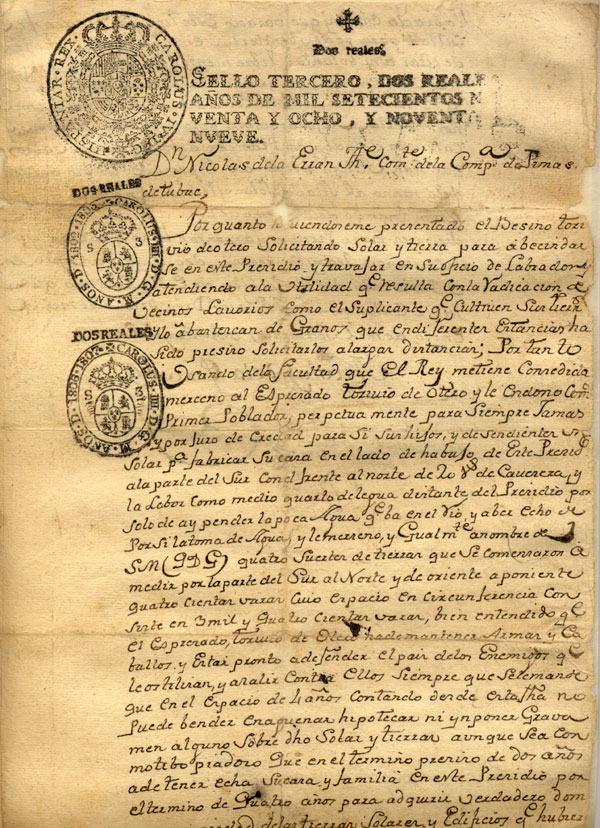 Dos reales.
SELLO TERCERO, DOS REALES
AÑOS DE MIL SETECIENTOS N
VENTA Y OCHO, Y NOVENTA
NVEVE.
CAROLUS
HISPANIAR. REX
Dn Nicolas de la Erran The Comte de la Compa de Pimas
de tubac,
DOS REALES
Por quanto haviendoreme presentado el Besino Tori
vio de otero Solicitando Solar y tierra para abecindar
se en este Presidio, y travajar en Su oficio de Labrador y
atendiendo ala Utilidad qe resulta Con la Radicacion de
Vecinos Lavorios Como el Suplicante qe Cultiven Sus tierr
abartescan de Granos que en diferenter Estancias ha
sido presiso Solicitarlos a largar distancias; Por tanto
Usando dela facultad que El Rey me tiene Consedida
merceno al Espresado Torivio de Otero y le En dono Com
Primer Poblador, perpetuamente para Siempre Jamas
y por Juro de Eredad para Si Sus hijos, y desendientes
Solar pa fabricar Su casa en el lado de habajo de Este Presid
ala parte del Sur Con el frente al norte de 20 vs de Cavecera, y
la Labor Como medio quarto de legua distante del Presidio por
solo de ay pender la poca Agua qe ba en el Rio, y aber echo de
Por Si la toma de Agua, y le merceno, y Gualmte a nombre de
S.M. (QDG) quatro Suertes de tierras que Se comensaron a
medir por la parte del Sur al Norte y de oriente a poniente
quatro cientas varas Cuio espacio en Circunferencia Con
siste en 3 mil y quatro Cientas varas, bien entendido qe
el Espresado, torivio de Otero ha de mantener Armas y Ca
ballos, y Estar pronto a defender el pais de los Enemigos qe
le ostilisan, y a salir Contra Ellos Siempre que Se le mande
que en el Espacio de 4 años Contando desde esta fha no
Puede bender Enaguenar hipotecar ni ynponer Grava
men alguno Sobre dho Solar y tierras aunque Sea con
motibo piadoso Que en el termino presiso de dos años
a de tener echa Su casa y familia en este Presidio por
el termino de Quatro años para adquirir verdadero dom
de las tierras Solares y Edificios qe hubier
DOS REALES
CAROLUS IIII D. G.